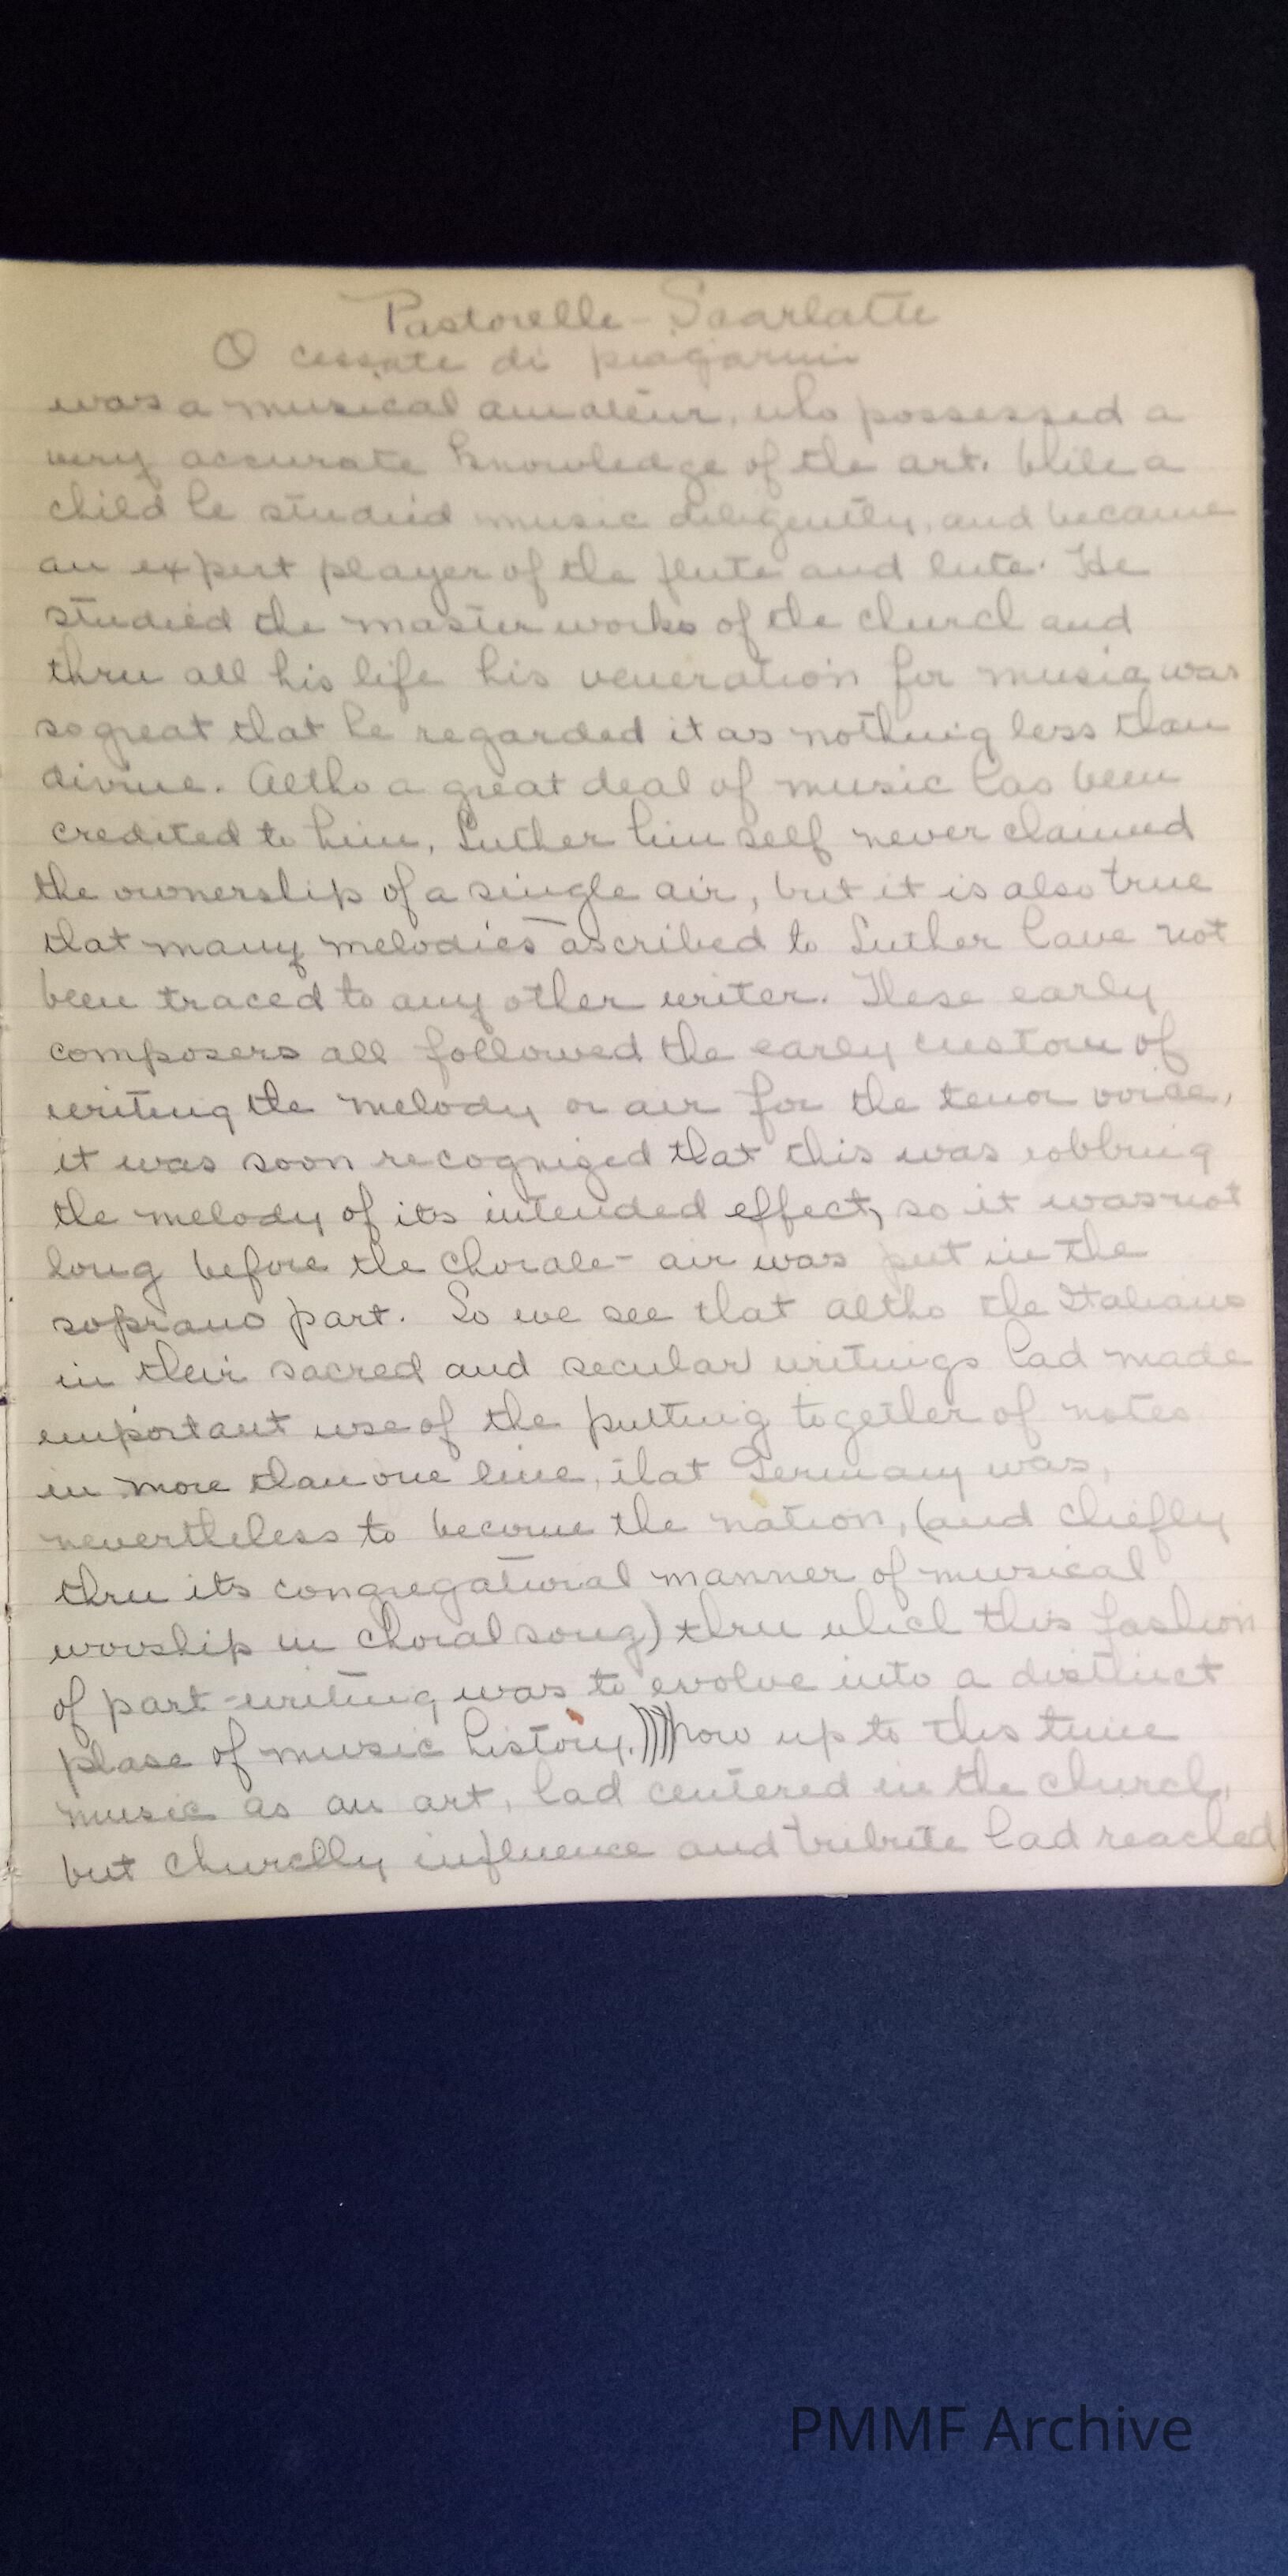 Pastorelle - Scarlatti
O cessate di piagarmi
was a musical amateur, who possessed a
very accurate knowledge of the art. While a
child he studied music diligently, and became
an expert player of the flute and lute. He
studied the master works of the church and
thru all his life his veneration for music was
so great that he regarded it as nothing less than
divine. Altho a great deal of music has been
credited to him, Luther himself never claimed
the ownership of a single air, but it is also true
that many melodies ascribed to Luther have not
been traced to any other writer. These early
composers all followed the early custom of
writing the melody or air for the tenor voice,
it was soon recognized that this was robbing
the melody of its intended effect, so it was not
long before the chorale - air was put in the
soprano part. So we see that altho the Italians
in their sacred and secular writings had made
important use of the putting together of notes
in more than one line, that Germany was,
nevertheless to become the nation, (and chiefly
thru its congregational manner of musical
worship in choral song) thru which this fashion
of part-writing was to evolve into a distinct
phase of music history.))))Now up to this time
music as an art, had centered in the church,
but churchly influence and tribute had reached
PMMF Archive